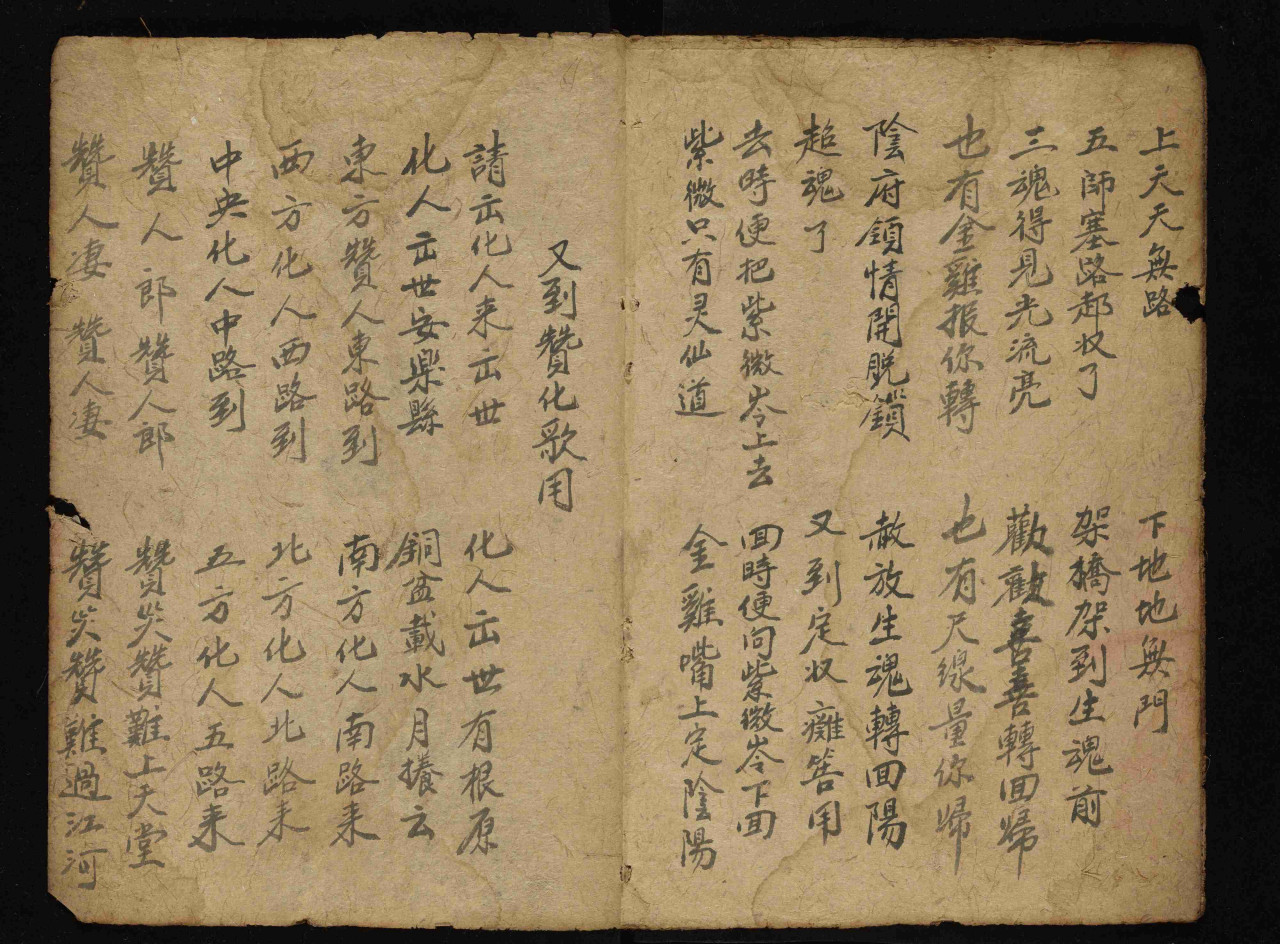 上天天無路　下地地無門
五師塞路都收了　架橋架到生魂前
三魂得見光流亮　勸勸喜喜轉回歸
也有金雞报你轉　也有尺線量你歸
陰府領情開脫鎖　赦放生魂轉回陽
超魂了　又到定収癱答用
去時便把紫微岺上去　回時便向紫微岺下回
紫微只有灵仙道　金雞嘴上定陰陽
又到贊化歌用
請出化人来出世　化人出世有根原
化人出世安樂縣　銅盆載水月攁云
東方贊人東路到　南方化人南路来
西方化人西路到　北方化人北路来
中央化人中路到　五方化人五路来
贊人郎贊人郎　贊㷋贊難上天堂
贊人凄贊人凄　贊㷋贊難過江河